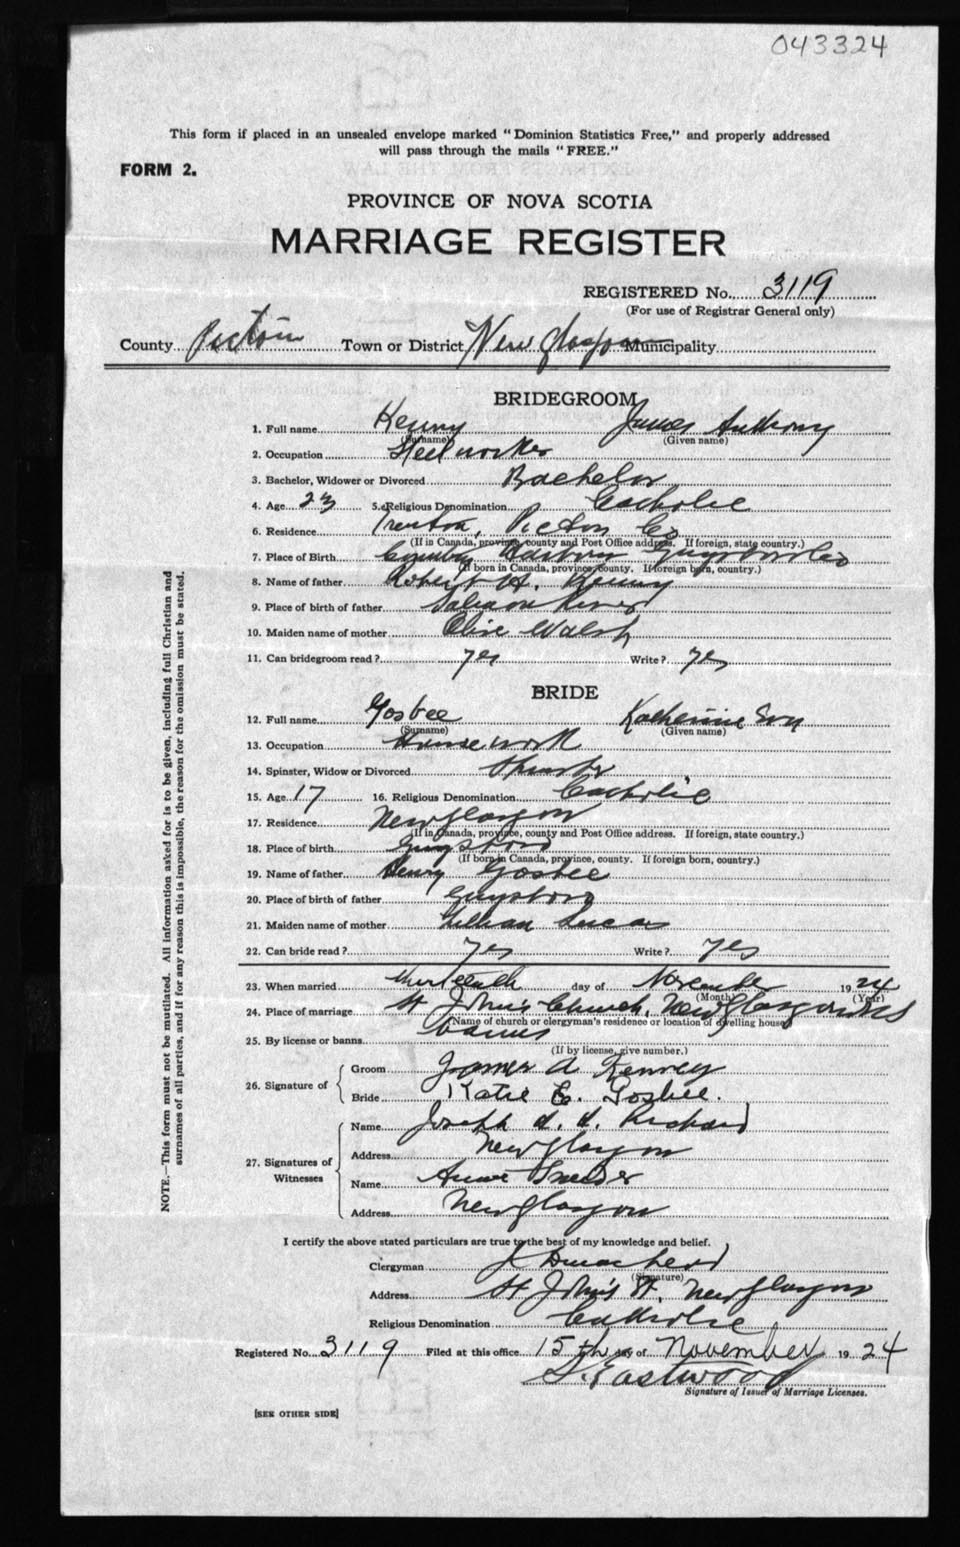 043324
This form if placed in an unsealed envelope marked "Dominion Statistics Free," and properly addressed
will pass through the mails "FREE."
FORM 2.
PROVINCE OF NOVA SCOTIA
MARRIAGE REGISTER
REGISTERED No. 3119
(For use of Registrar General only)
County Pictou Town or District New Glasgow Municipality
BRIDEGROOM
1. Full name Kenny James Anthony
(Surname) (Given name)
2. Occupation Steel worker
3. Bachelor, Widower or Divorced Bachelor
4. Age 23 5. Religious Denomination Catholic
6. Residence Trenton, Pictou Co
(If in Canada, province, county and Post Office address. If foreign, state country.)
7. Place of Birth Country Harbour Guysboro Co
(If born in Canada, province, county. If foreign born, country.)
8. Name of father Robert H. Kenny
9. Place of birth of father Salmon River
10. Maiden name of mother Olive Walsh
11. Can bridegroom read? yes Write? yes
BRIDE
12. Full name Gosbee Katherine
(Surname) (Given name)
13. Occupation Housework
14. Spinster, Widow or Divorced Spinster
15. Age 17 16. Religious Denomination Catholic
17. Residence New Glasgow
(If in Canada, province, county and Post Office address. If foreign, state country.)
18. Place of birth Guysboro
(If born in Canada, province, county. If foreign born, country.)
19. Name of father Henry Gosbee
20. Place of birth of father Guysboro
21. Maiden name of mother Lillian Lucas
22. Can bride read? yes Write? yes
23. When married thirteenth day of November 1924
(Month) (Year)
24. Place of marriage St John's Church, New Glasgow NS
(Name of church or clergyman's residence or location of dwelling house)
25. By license or banns banns
(If by license, give number.)
26. Signature of
Groom James A Kenney
Bride Katie E. Gosbee.
27. Signatures of Witnesses
Name Joseph A. Richard
Address New Glasgow
Name Annie
Address New Glasgow
I certify the above stated particulars are true to the best of my knowledge and belief.
Clergyman
(Signature)
Address St John's New Glasgow
Religious Denomination Catholic
Registered No. 3119 Filed at this office 15th day of November 1924
Eastwood
Signature of Issuer of Marriage Licenses.
[SEE OTHER SIDE]
NOTE.—This form must not be mutilated. All information asked for is to be given, including full Christian and
surnames of all parties, and if for any reason this is impossible, the reason for the omission must be stated.